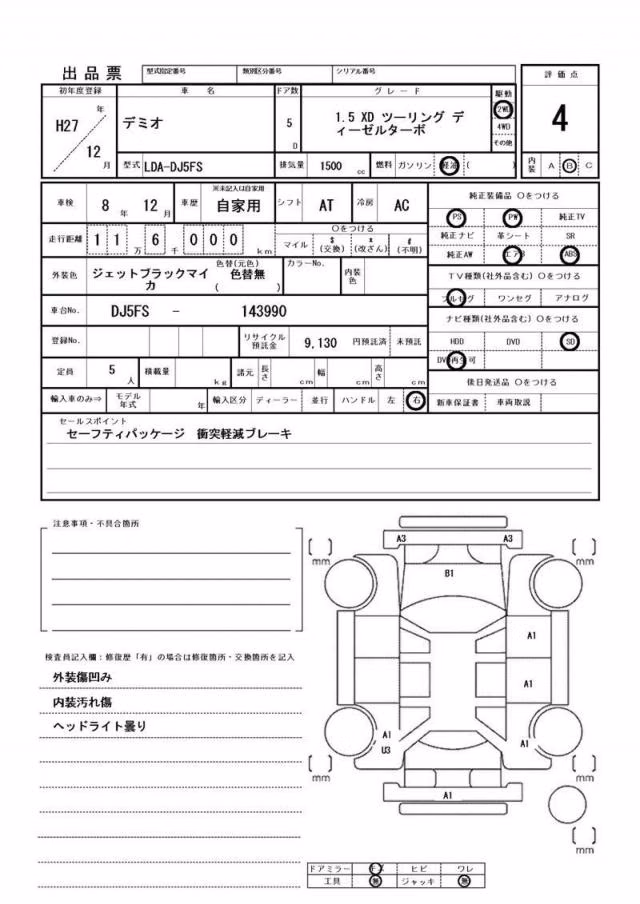 出品票 型式指定番号 類別区分番号 シリアル番号 評価点
初年度登録 車名 ドア数 グレード 駆動
H27 年 デミオ 5 D 1.5 XD ツーリング デ 2WD 4
12 月 ィーゼルターボ 4WD
その他
型式 LDA-DJ5FS 排気量 1500 cc 燃料 ガソリン 軽油 ( ) 内装 A B C
車検 8 年 12 月 車歴 ※未記入は自家用 自家用 シフト AT 冷房 AC 純正装備品 ○をつける
PS PW 純正TV
走行距離 1 1 万 6 千 0 0 0 km ○をつける 純正ナビ 革シート SR
マイル $(交換) x(改ざん) #(不明) 純正AW エアB ABS
外装色 ジェットブラックマイカ 色替(元色) 色替無 ( ) カラーNo. 内装色 TV種類(社外品含む) ○をつける
フルセグ ワンセグ アナログ
車台No. DJ5FS - 143990 ナビ種類(社外品含む) ○をつける
登録No. リサイクル預託金 9,130 円預託済 未預託 HDD DVD SD
DVD再生可
定員 5 人 積載量 kg 諸元 長さ cm 幅 cm 高さ cm 後日発送品 ○をつける
輸入車のみ⇒ モデル年式 年 輸入区分 ディーラー 並行 ハンドル 左 右 新車保証書 車両取説
セールスポイント
セーフティパッケージ 衝突軽減ブレーキ
注意事項・不具合箇所
検査員記入欄：修復歴「有」の場合は修復箇所・交換箇所を記入
外装傷凹み
内装汚れ傷
ヘッドライト曇り
A3 A3
[ ] mm [ ] mm
B1
A1
A1
A1 A1
U3
[ ] mm [ ] mm
A1
[ ] mm
ドアミラー ヒビ ワレ
工具 無 ジャッキ 無